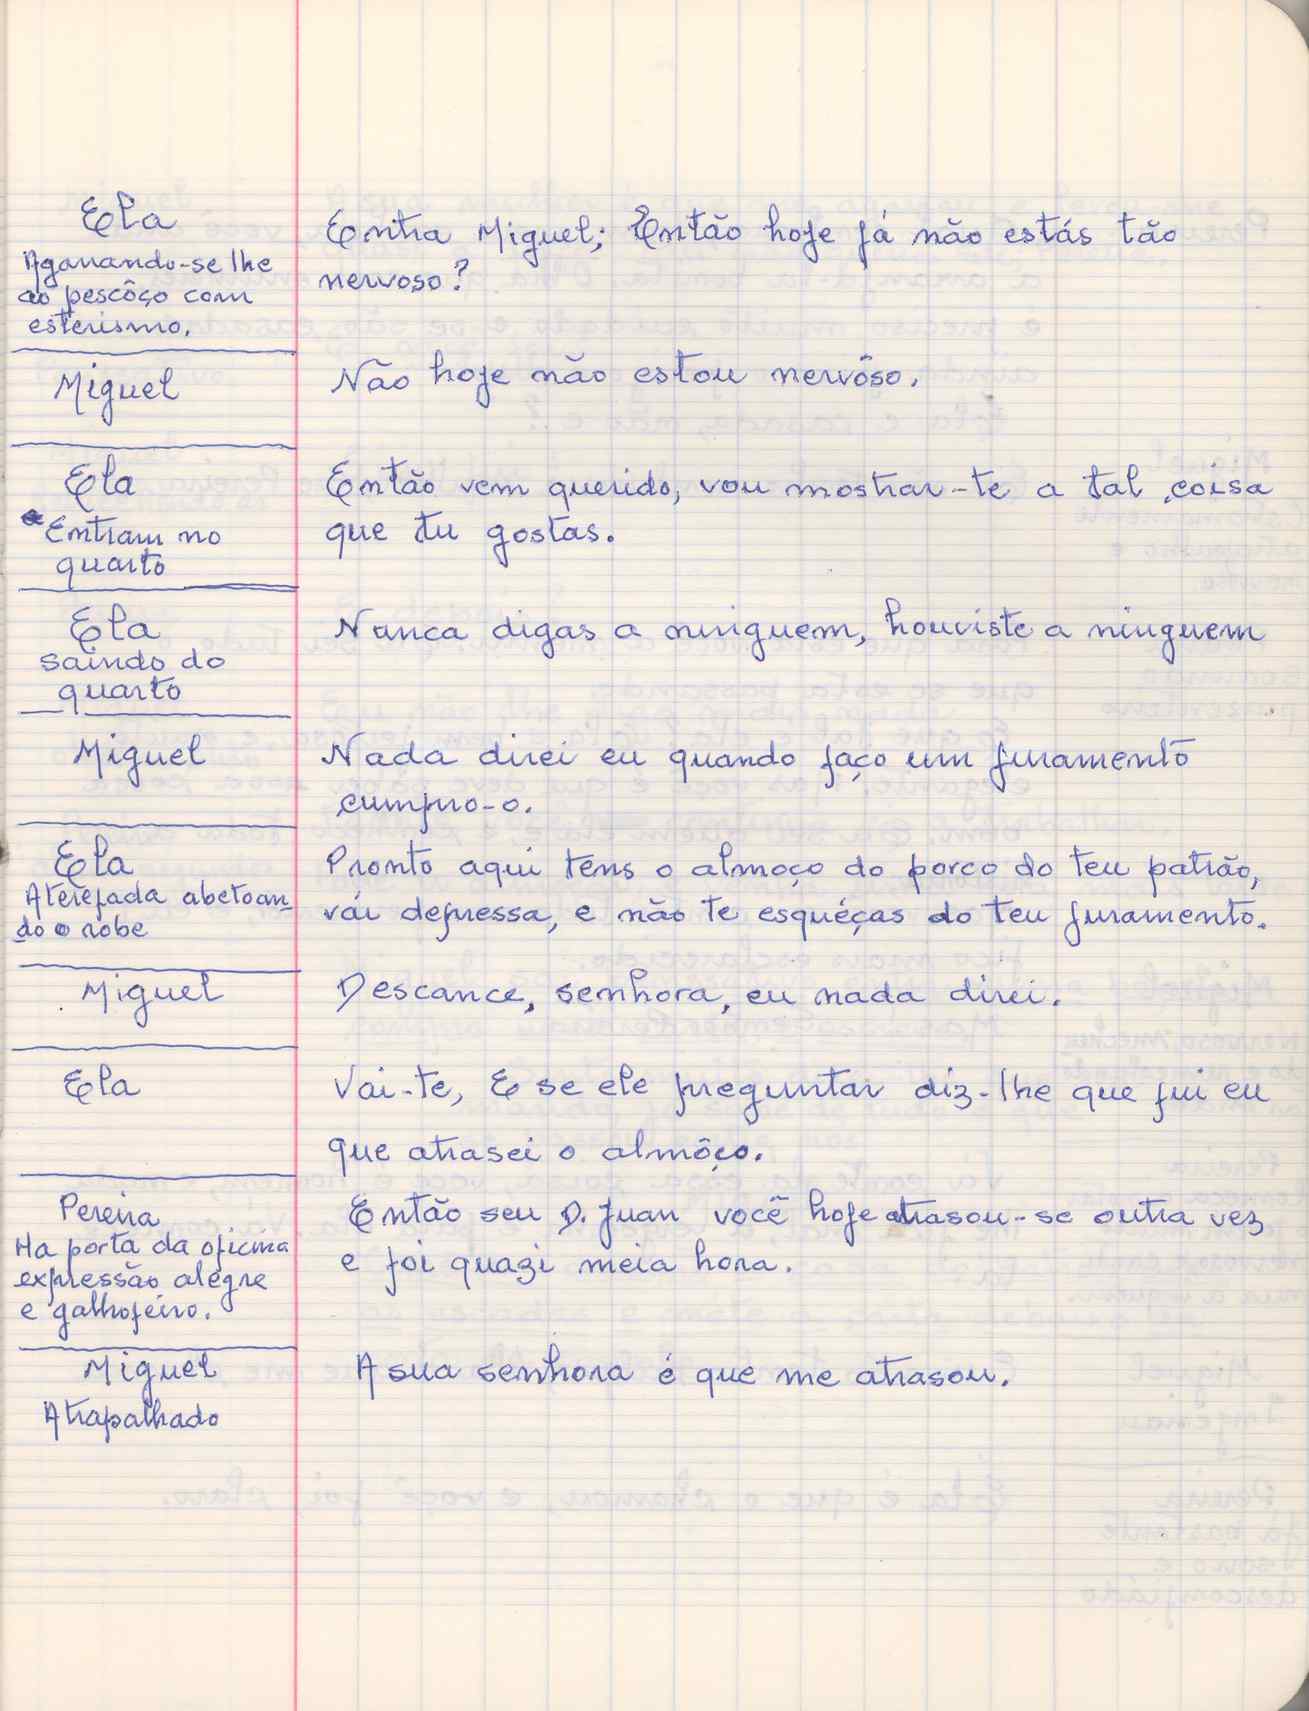 Ela
Agarrando-se lhe
ao pescôço com
esterismo.
Entra Miguel; Então hoje já não estás tão
nervoso?
Miguel
Não hoje não estou nervôso.
Ela
Entram no
quarto
Então vem querido, vou mostrar-te a tal coisa
que tu gostas.
Ela
saindo do
quarto
Nunca digas a ninguem, houviste a ninguem
Miguel
Nada direi eu quando faço um juramento
cumpro-o.
Ela
Aterefada abetoan
do o robe
Pronto aqui tens o almoço do porco do teu patrão,
vái depressa, e não te esquéças do teu juramento.
Miguel
Descance, senhora, eu nada direi.
Ela
Vai-te, E se ele preguntar diz-lhe que fui eu
que atrasei o almôço.
Pereira
Na porta da oficina
expressão alegre
e galhofeiro.
Então seu D. Juan você hoje atrasou-se outra vez
e foi quazi meia hora.
Miguel
Atrapalhado
A sua senhora é que me atrasou.